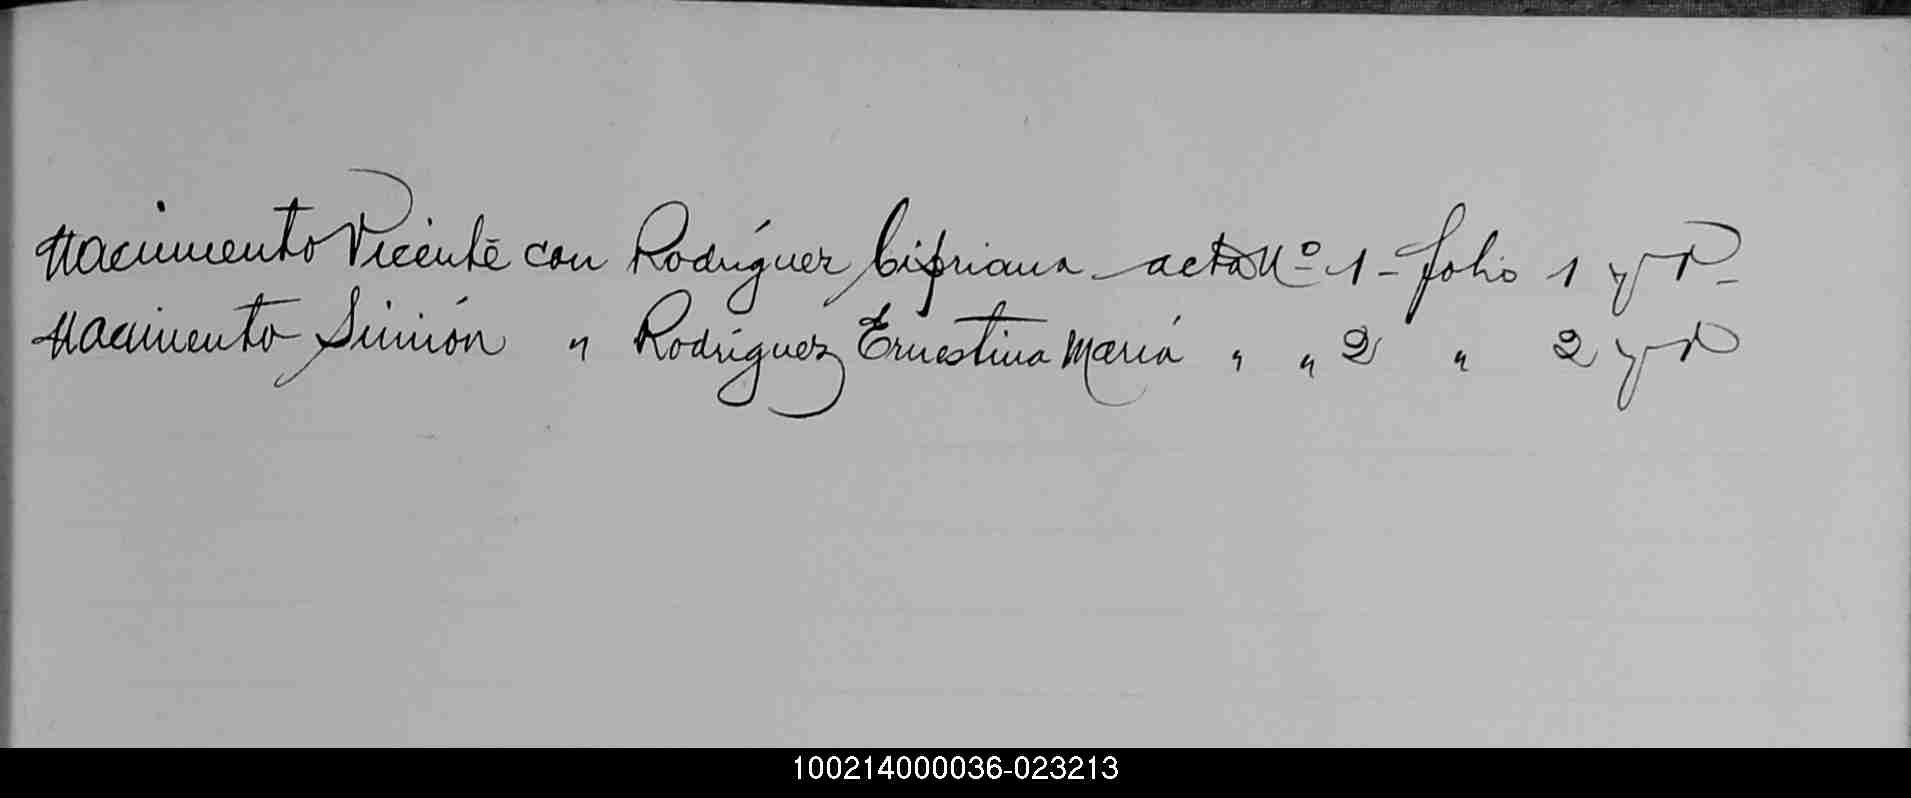 Nacimiento Vicente con Rodríguez Cipriana - acta Nº 1 - folio 1 y v -
Nacimiento Simión " Rodríguez Ernestina María " " 2 " 2 y v
100214000036-023213